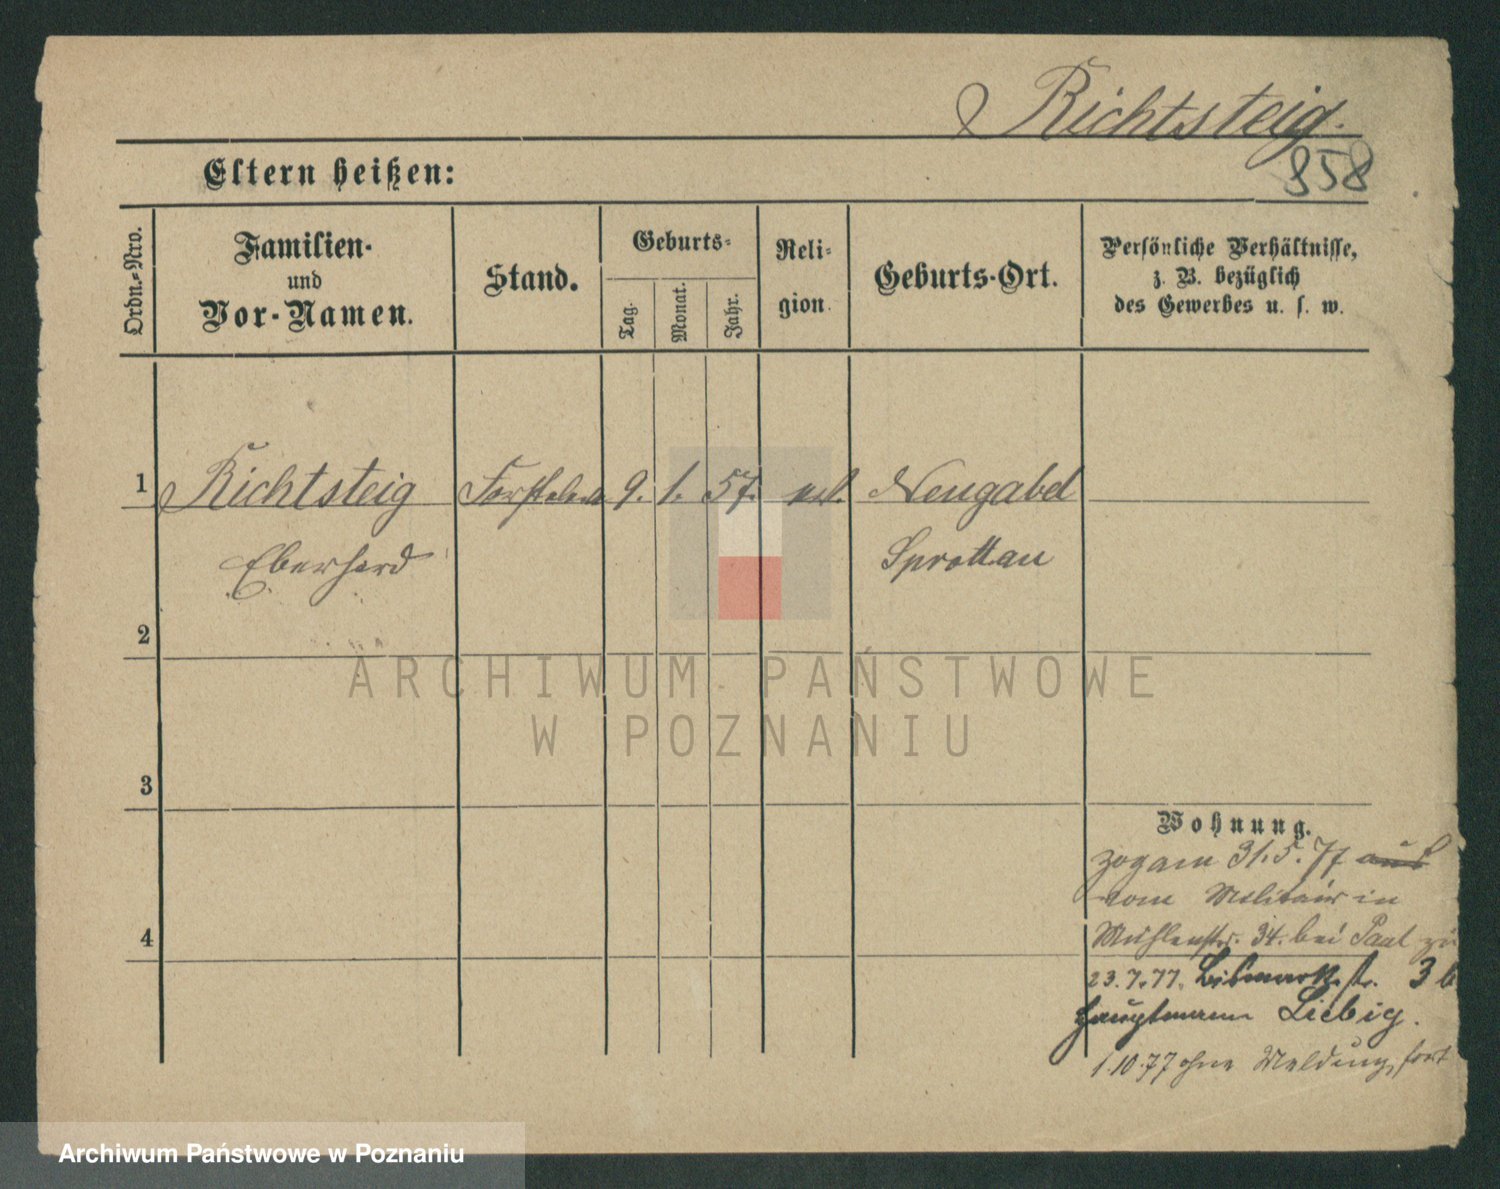 Richtsteig.
858
Eltern heißen:
Ordn.-Nro.
Familien-
und
Vor-Namen.
Stand.
Geburts-
Tag.
Monat.
Jahr.
Reli-
gion.
Geburts-Ort.
Persönliche Verhältnisse,
z. B. bezüglich
des Gewerbes u. s. w.
1 Richtsteig 9. 1. 57. Neugabel
Eberhard Sprottau
2
3
4
Wohnung.
zog am 31.5.77 aus
vom Militair in
Mühlenstr. 34. bei Paul
23.7.77. Bismarkstr. 3 b
Hauptmann Liebig.
1.10.77 ohne Meldung fort
ARCHIWUM PAŃSTWOWE
W POZNANIU
Archiwum Państwowe w Poznaniu